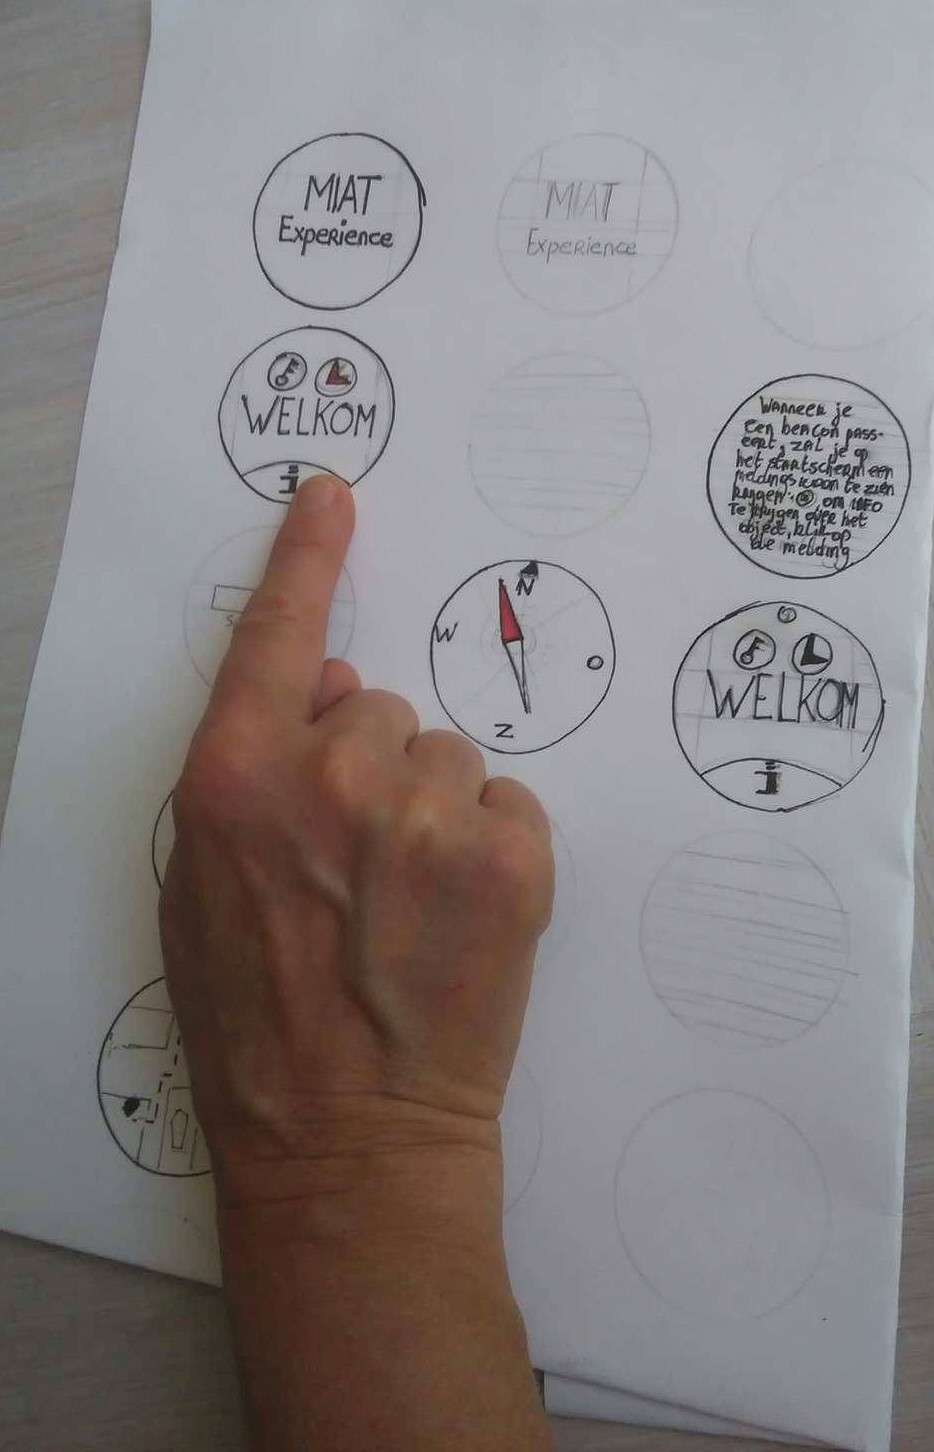 MIAT
Experience
MIAT
Experience
WELKOM
i
Wanneer je
een beacon pass-
eert, zal je op
het startscherm een
meldingsicoon te zien
krijgen: , om INFO
Te krijgen over het
object, klik op
de melding
N
W
O
Z
WELKOM
i